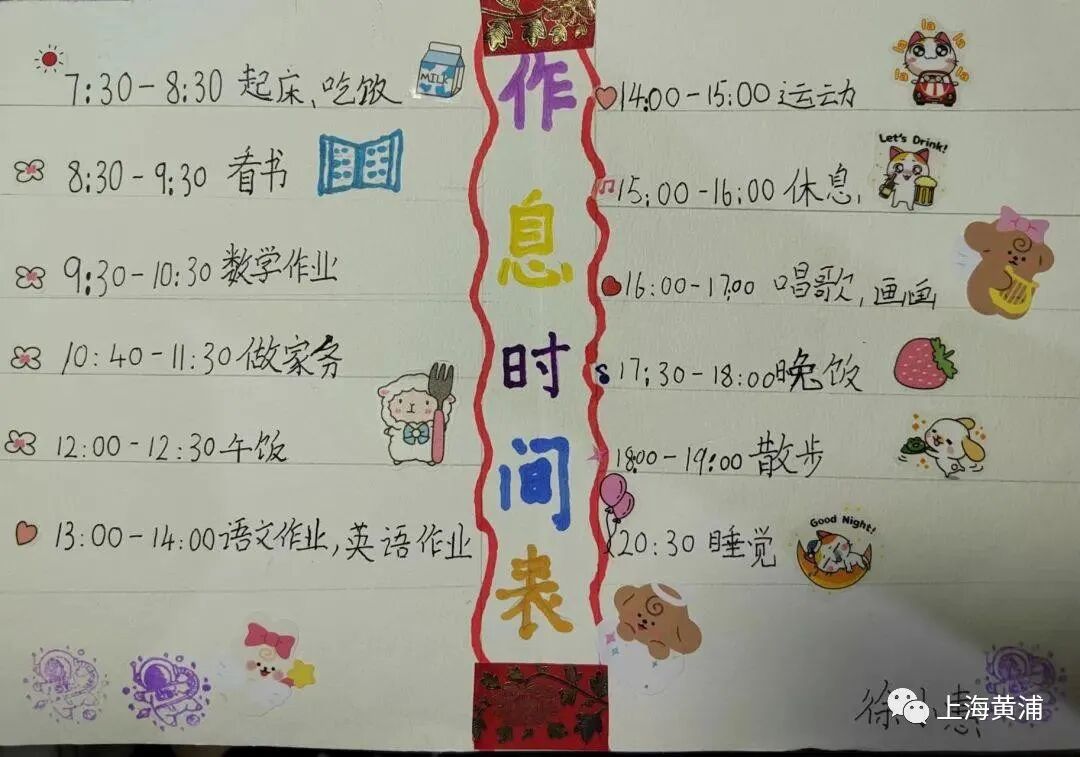 作息时间表
7:30-8:30 起床、吃饭
MILK
8:30-9:30 看书
9:30-10:30 数学作业
10:40-11:30 做家务
12:00-12:30 午饭
13:00-14:00 语文作业,英语作业
la la la la la
14:00-15:00 运动
Let's Drink!
15:00-16:00 休息,
16:00-17:00 唱歌,画画
17:30-18:00 晚饭
18:00-19:00 散步
Good Night!
20:30 睡觉
上海黄浦